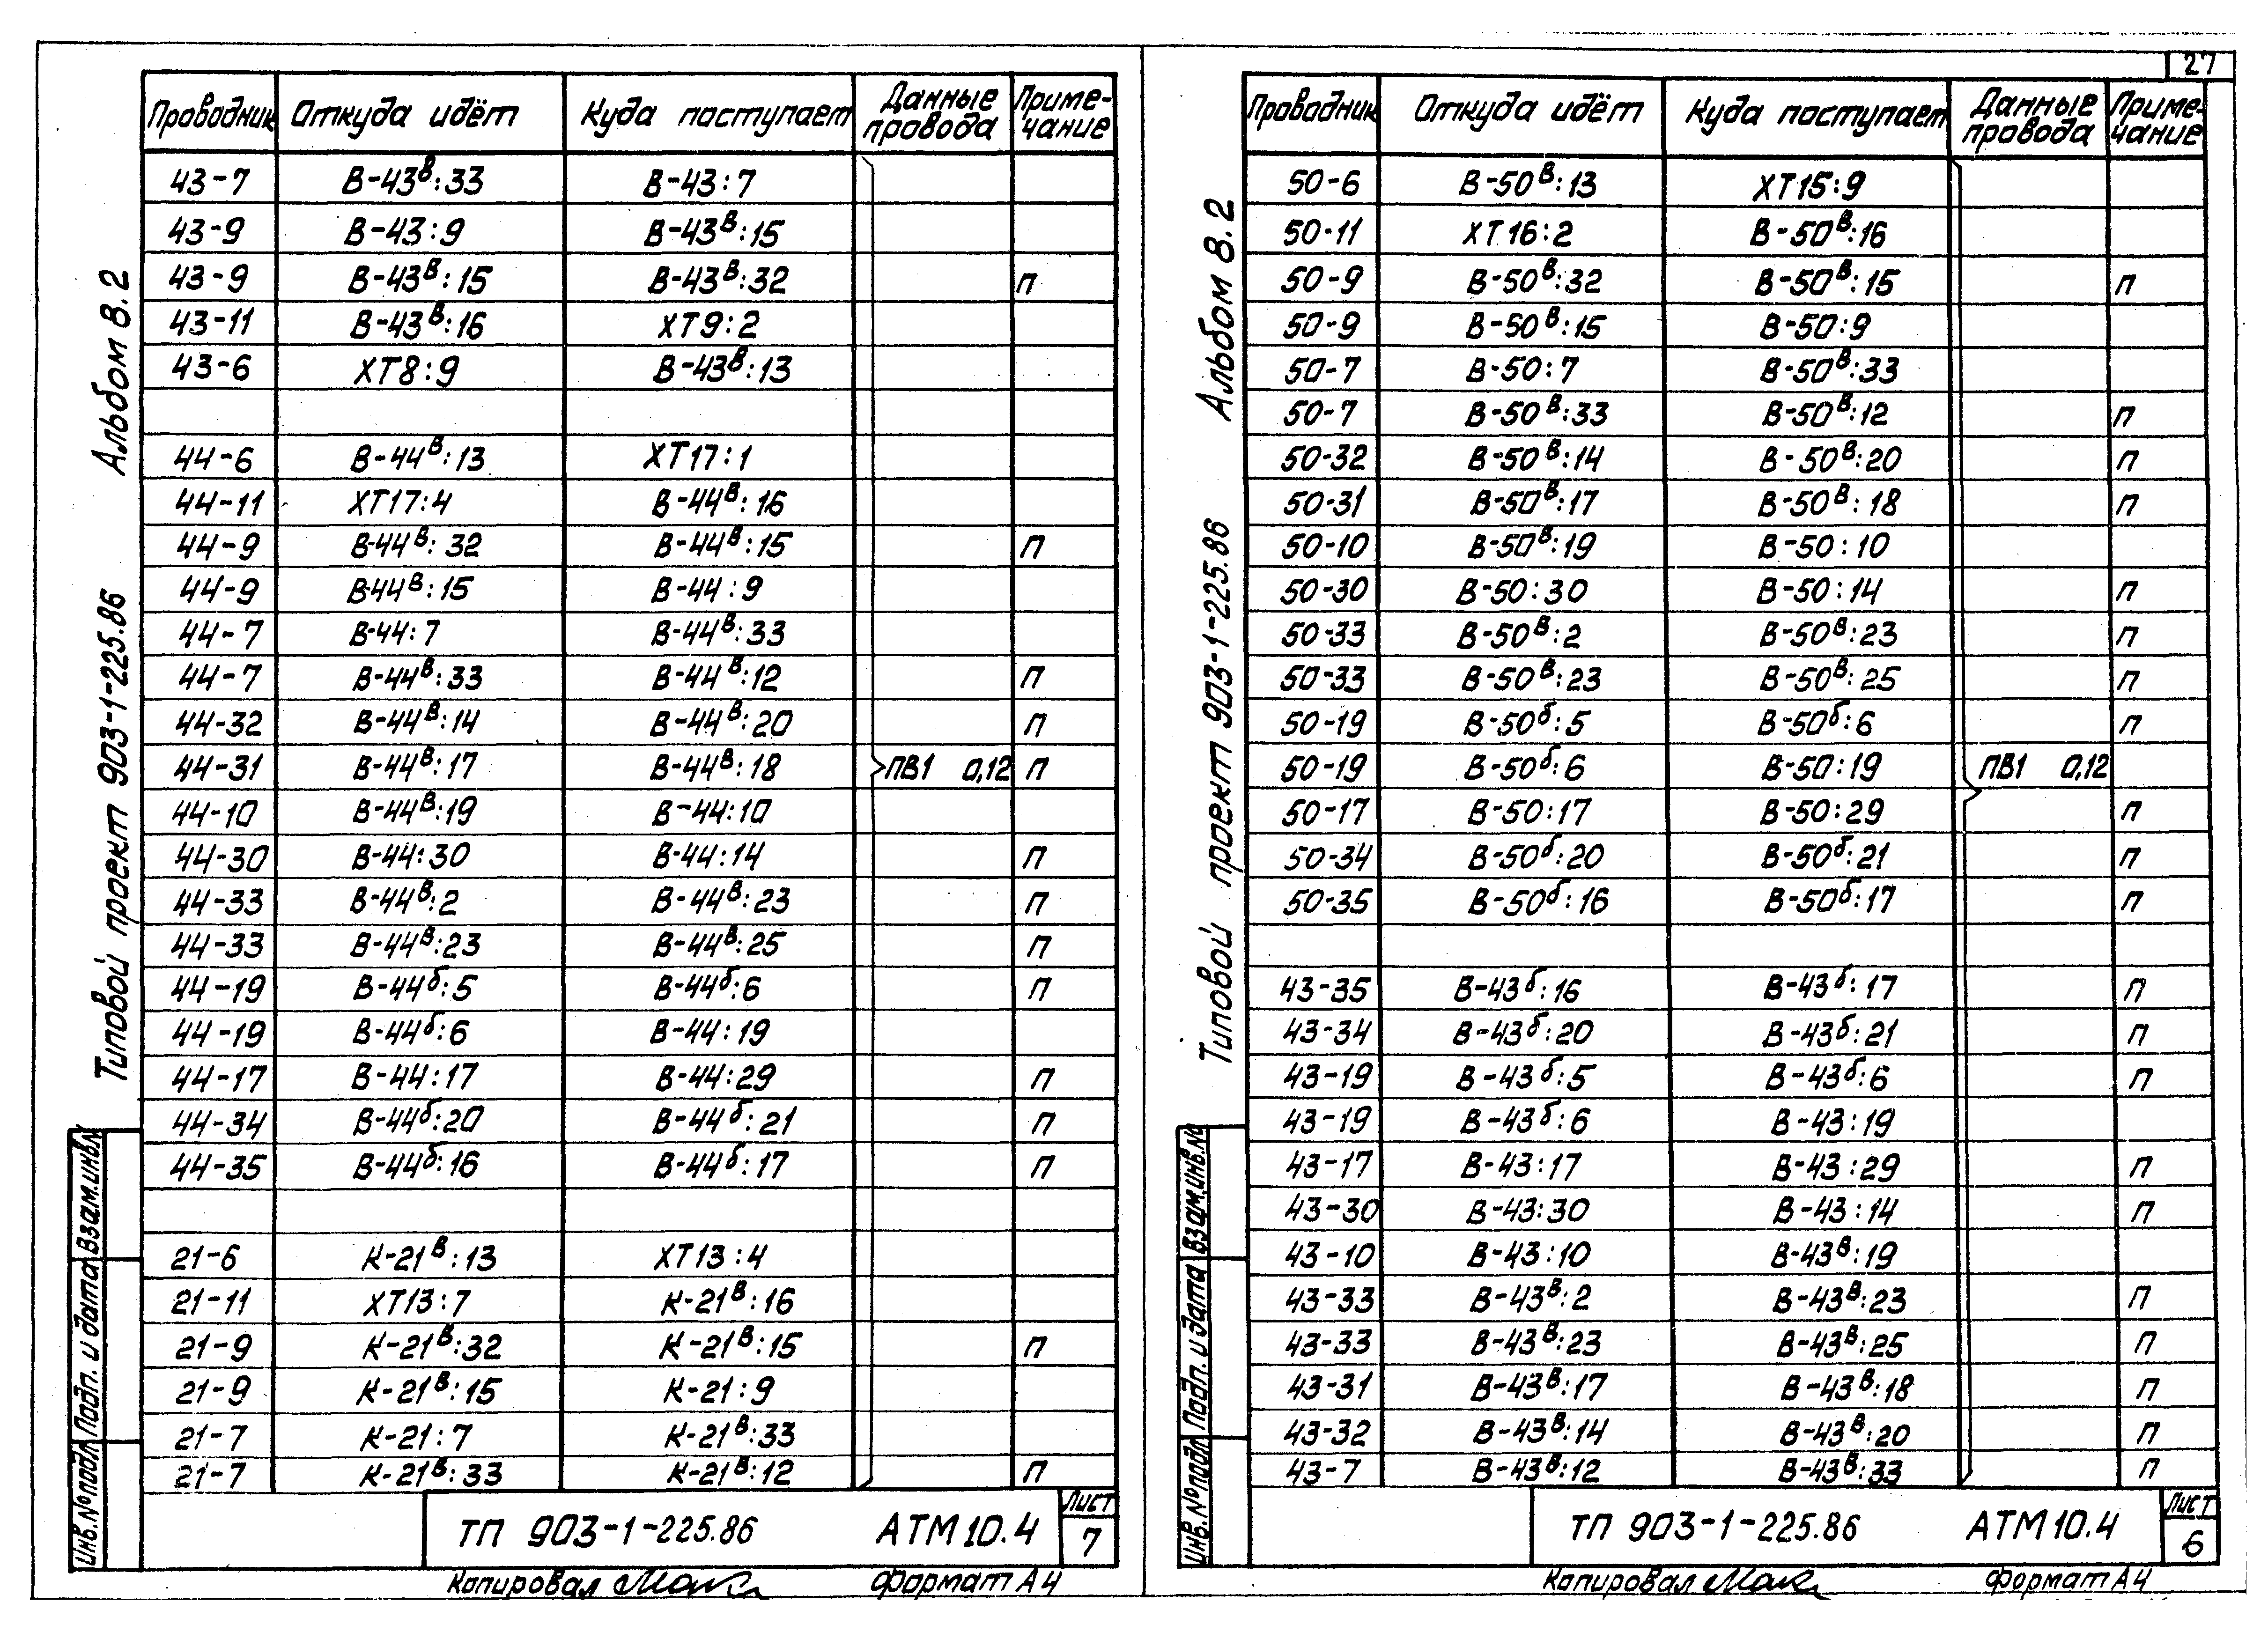 27
Альбом 8.2
Типовой проект 903-1-225.86
Взам.инв.№
Подп. и дата
Инв.№подл
Проводник Откуда идёт Куда поступает Данные провода Примечание
43-7 В-43в:33 В-43:7
43-9 В-43:9 В-43в:15
43-9 В-43в:15 В-43в:32 П
43-11 В-43в:16 ХТ9:2
43-6 ХТ8:9 В-43в:13
44-6 В-44в:13 ХТ17:1
44-11 ХТ17:4 В-44в:16
44-9 В-44в:32 В-44в:15 П
44-9 В-44в:15 В-44:9
44-7 В-44:7 В-44в:33
44-7 В-44в:33 В-44в:12 П
44-32 В-44в:14 В-44в:20 П
44-31 В-44в:17 В-44в:18 ПВ1 0,12 П
44-10 В-44в:19 В-44:10
44-30 В-44:30 В-44:14 П
44-33 В-44в:2 В-44в:23 П
44-33 В-44в:23 В-44в:25 П
44-19 В-44б:5 В-44б:6 П
44-19 В-44б:6 В-44:19
44-17 В-44:17 В-44:29 П
44-34 В-44б:20 В-44б:21 П
44-35 В-44б:16 В-44б:17 П
21-6 К-21в:13 ХТ13:4
21-11 ХТ13:7 К-21в:16
21-9 К-21в:32 К-21в:15 П
21-9 К-21в:15 К-21:9
21-7 К-21:7 К-21в:33
21-7 К-21в:33 К-21в:12 П
ТП 903-1-225.86 АТМ10.4 Лист 7
Копировал Формат А4
Альбом 8.2
Типовой проект 903-1-225.86
Взам.инв.№
Подп. и дата
Инв.№подл
Проводник Откуда идёт Куда поступает Данные провода Примечание
50-6 В-50в:13 ХТ15:9
50-11 ХТ16:2 В-50в:16
50-9 В-50в:32 В-50в:15 П
50-9 В-50в:15 В-50:9
50-7 В-50:7 В-50в:33
50-7 В-50в:33 В-50в:12 П
50-32 В-50в:14 В-50в:20 П
50-31 В-50в:17 В-50в:18 П
50-10 В-50в:19 В-50:10
50-30 В-50:30 В-50:14 П
50-33 В-50в:2 В-50в:23 П
50-33 В-50в:23 В-50в:25 П
50-19 В-50б:5 В-50б:6 П
50-19 В-50б:6 В-50:19 ПВ1 0,12
50-17 В-50:17 В-50:29 П
50-34 В-50б:20 В-50б:21 П
50-35 В-50б:16 В-50б:17 П
43-35 В-43б:16 В-43б:17 П
43-34 В-43б:20 В-43б:21 П
43-19 В-43б:5 В-43б:6 П
43-19 В-43б:6 В-43:19
43-17 В-43:17 В-43:29 П
43-30 В-43:30 В-43:14 П
43-10 В-43:10 В-43в:19
43-33 В-43в:2 В-43в:23 П
43-33 В-43в:23 В-43в:25 П
43-31 В-43в:17 В-43в:18 П
43-32 В-43в:14 В-43в:20 П
43-7 В-43в:12 В-43в:33 П
ТП 903-1-225.86 АТМ10.4 Лист 6
Копировал Формат А4